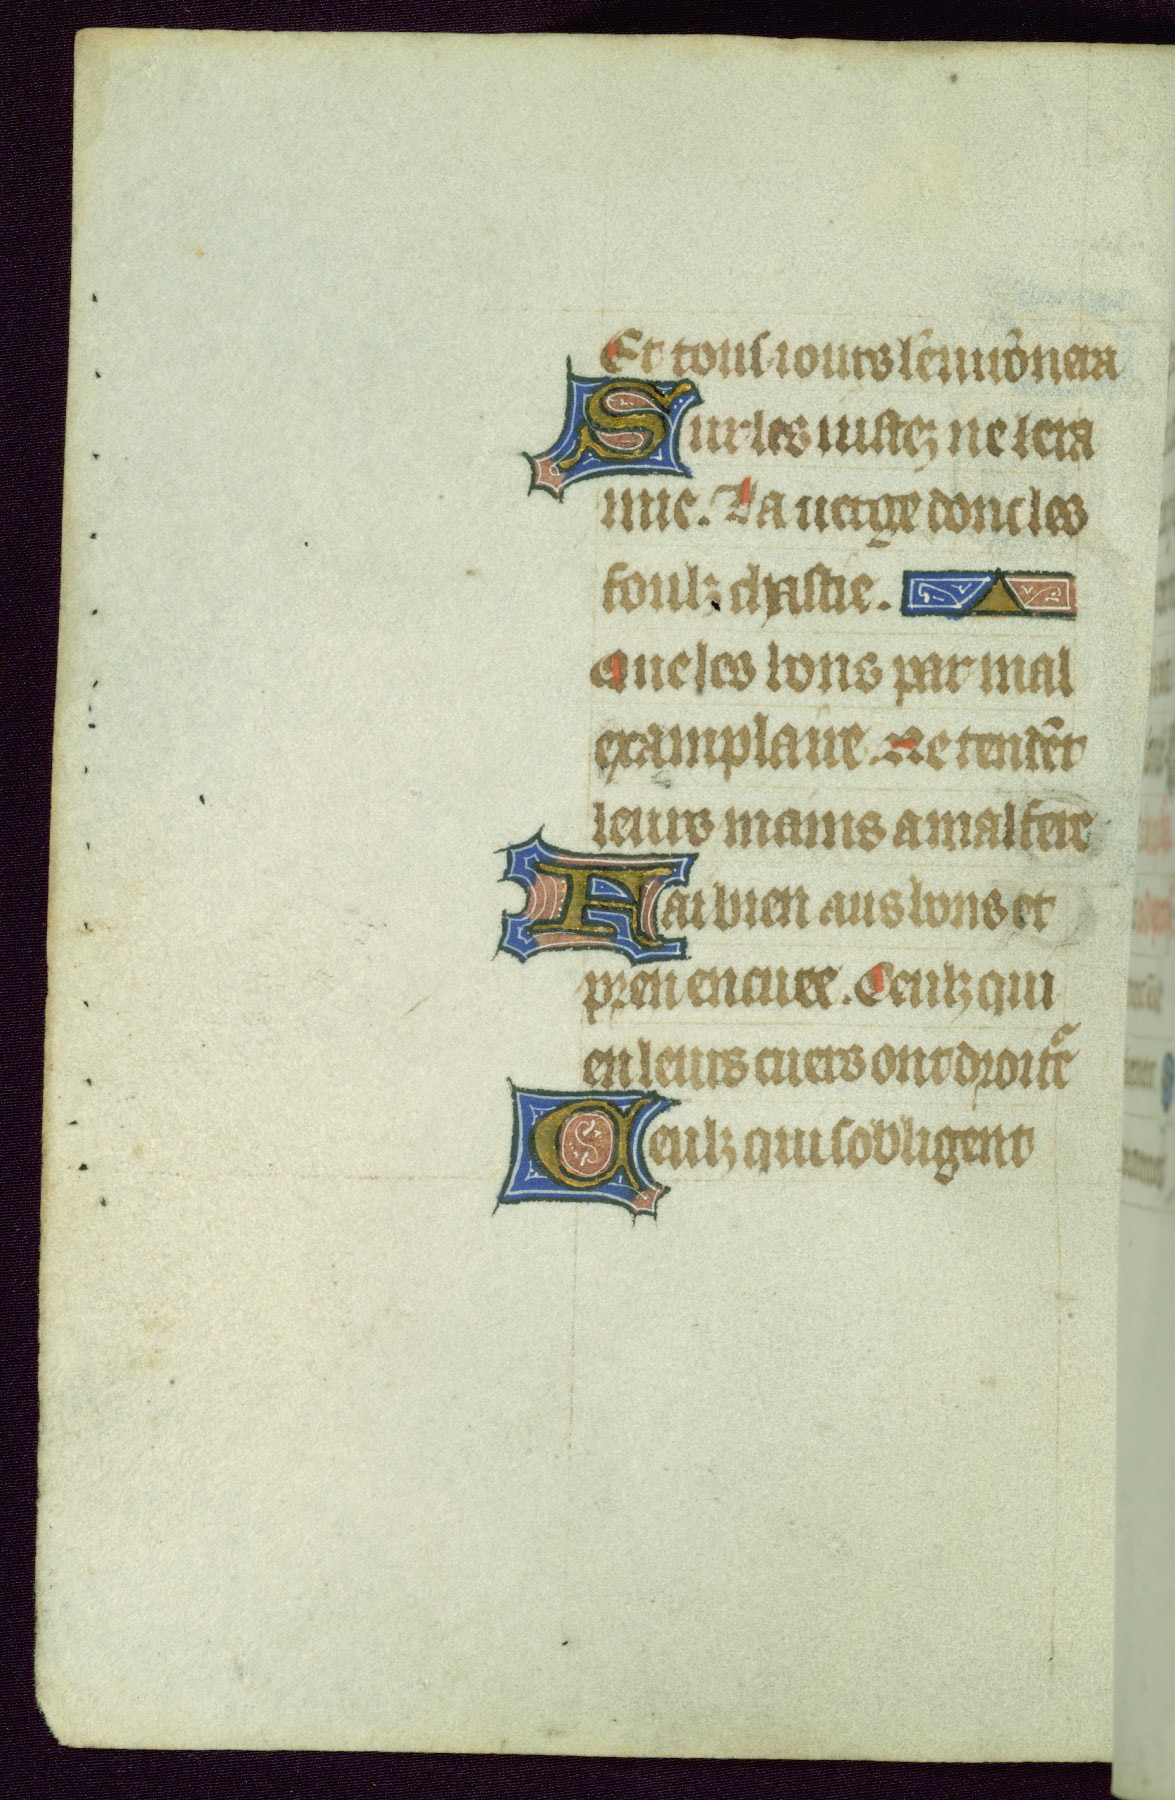 Et tousiours lenuirõnera
Sur les iustez ne lera
mie. La uerge donc les
foulz chastie.
Que les bons par mal
examplaire. Ne tendẽt
leurs mains a mal fere
Fai bien aus bons et
pren en cure. Ceulz qui
en leurs cuers ont droitẽ
Ceulz qui sobligent